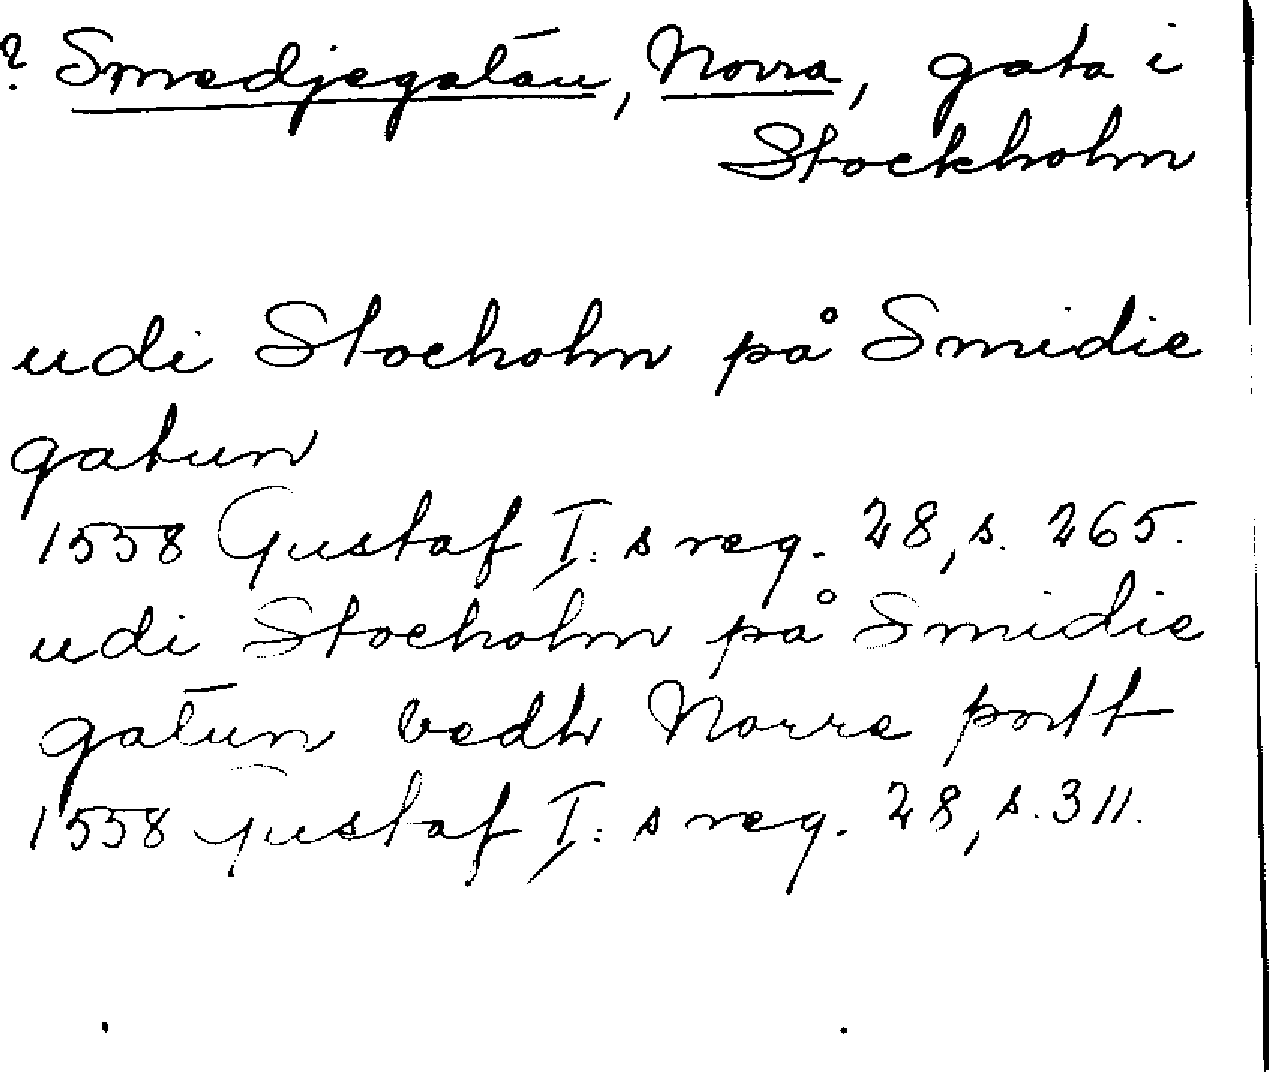 ? Smedjegatan, Norra, gata i
Stockholm
udi Stocholm på Smidie
gatun
1558 Gustaf I:s reg. 28, s. 265.
udi Stocholm på Smidie
gatun vedh Norre portt
1558 Gustaf I:s reg. 28, s. 311.